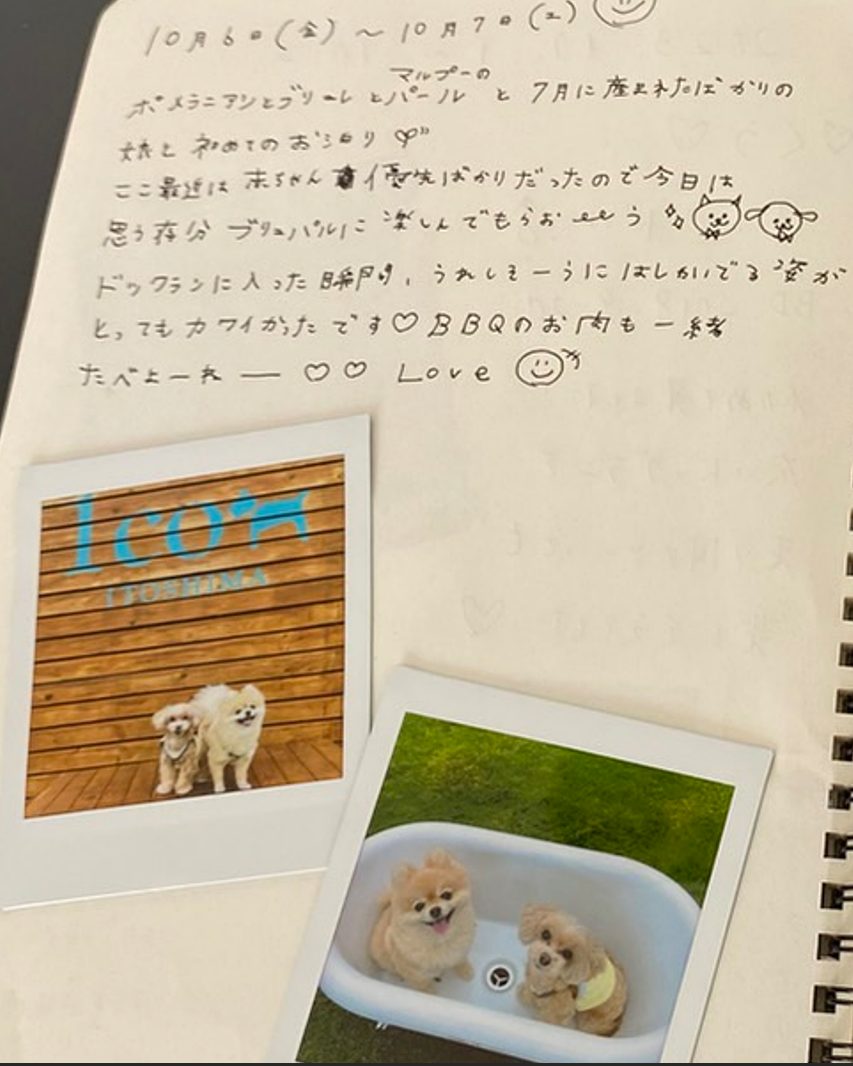 10月6日(金)〜10月7日(土)
マルプーの
ポメラニアンとブリューレとパールと7月に産まれたばかりの
娘と初めてのお泊り
ここ最近は赤ちゃん優先ばかりだったので今日は
思う存分ブリュパルに楽しんでもらおう
ドックランに入った瞬間、うれしそーうにはしゃいでる姿が
とってもカワイかったです♡BBQのお肉も一緒
たべよーねー ♡♡ Love
Ico
ITOSHIMA